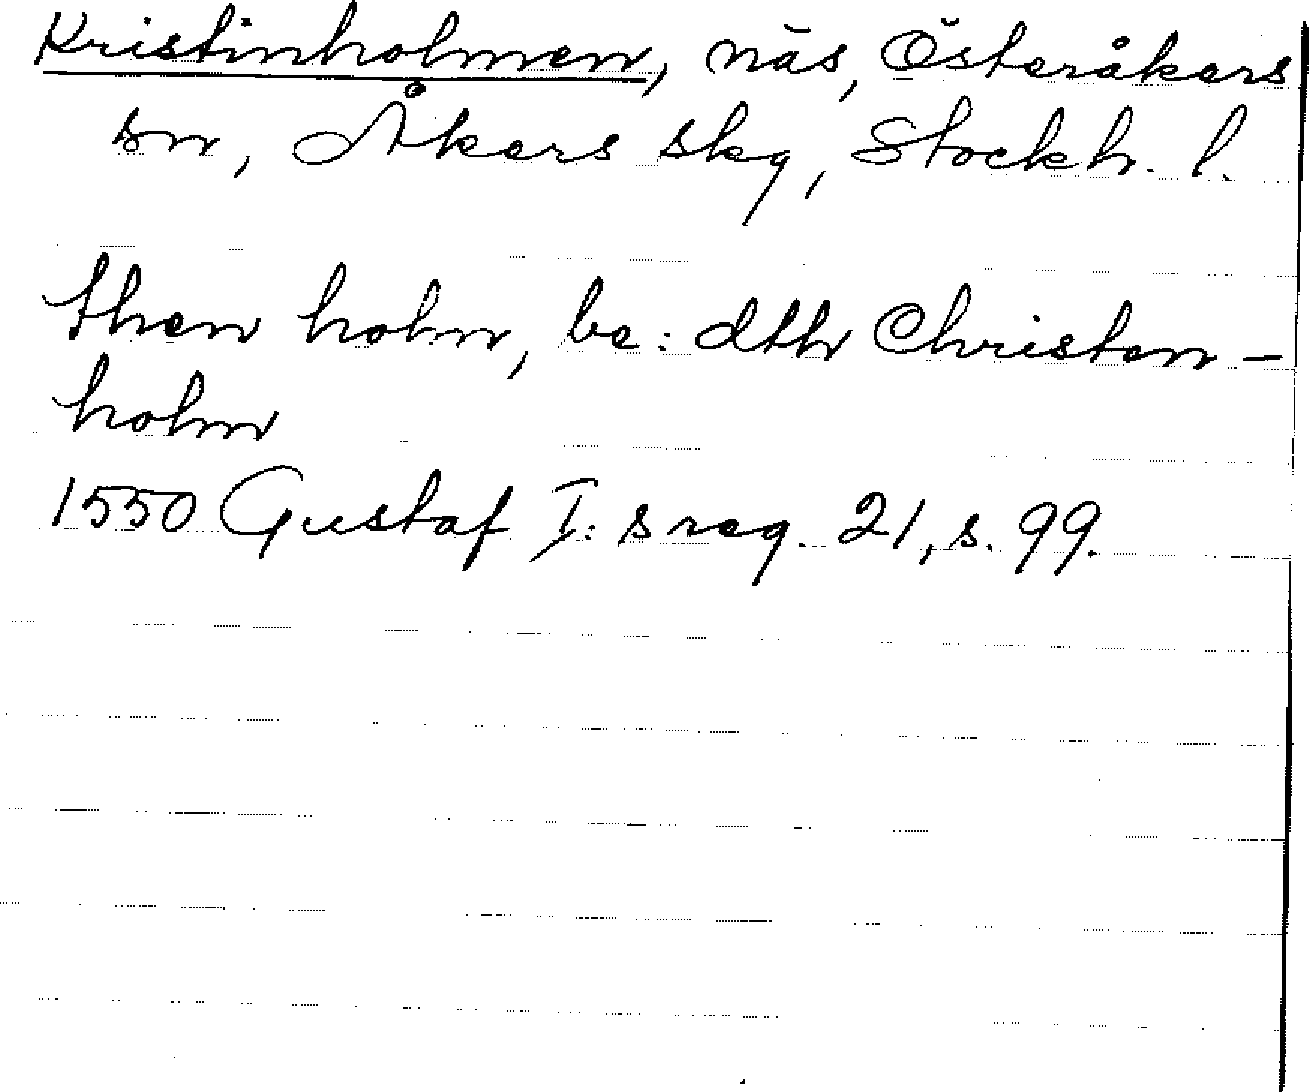 Kristinholmen, näs, Österåkers
sn, Åkers skg, Stockh. l.
then holm, be: dth Christen-
holm
1550 Gustaf I:s reg. 21, s. 99.